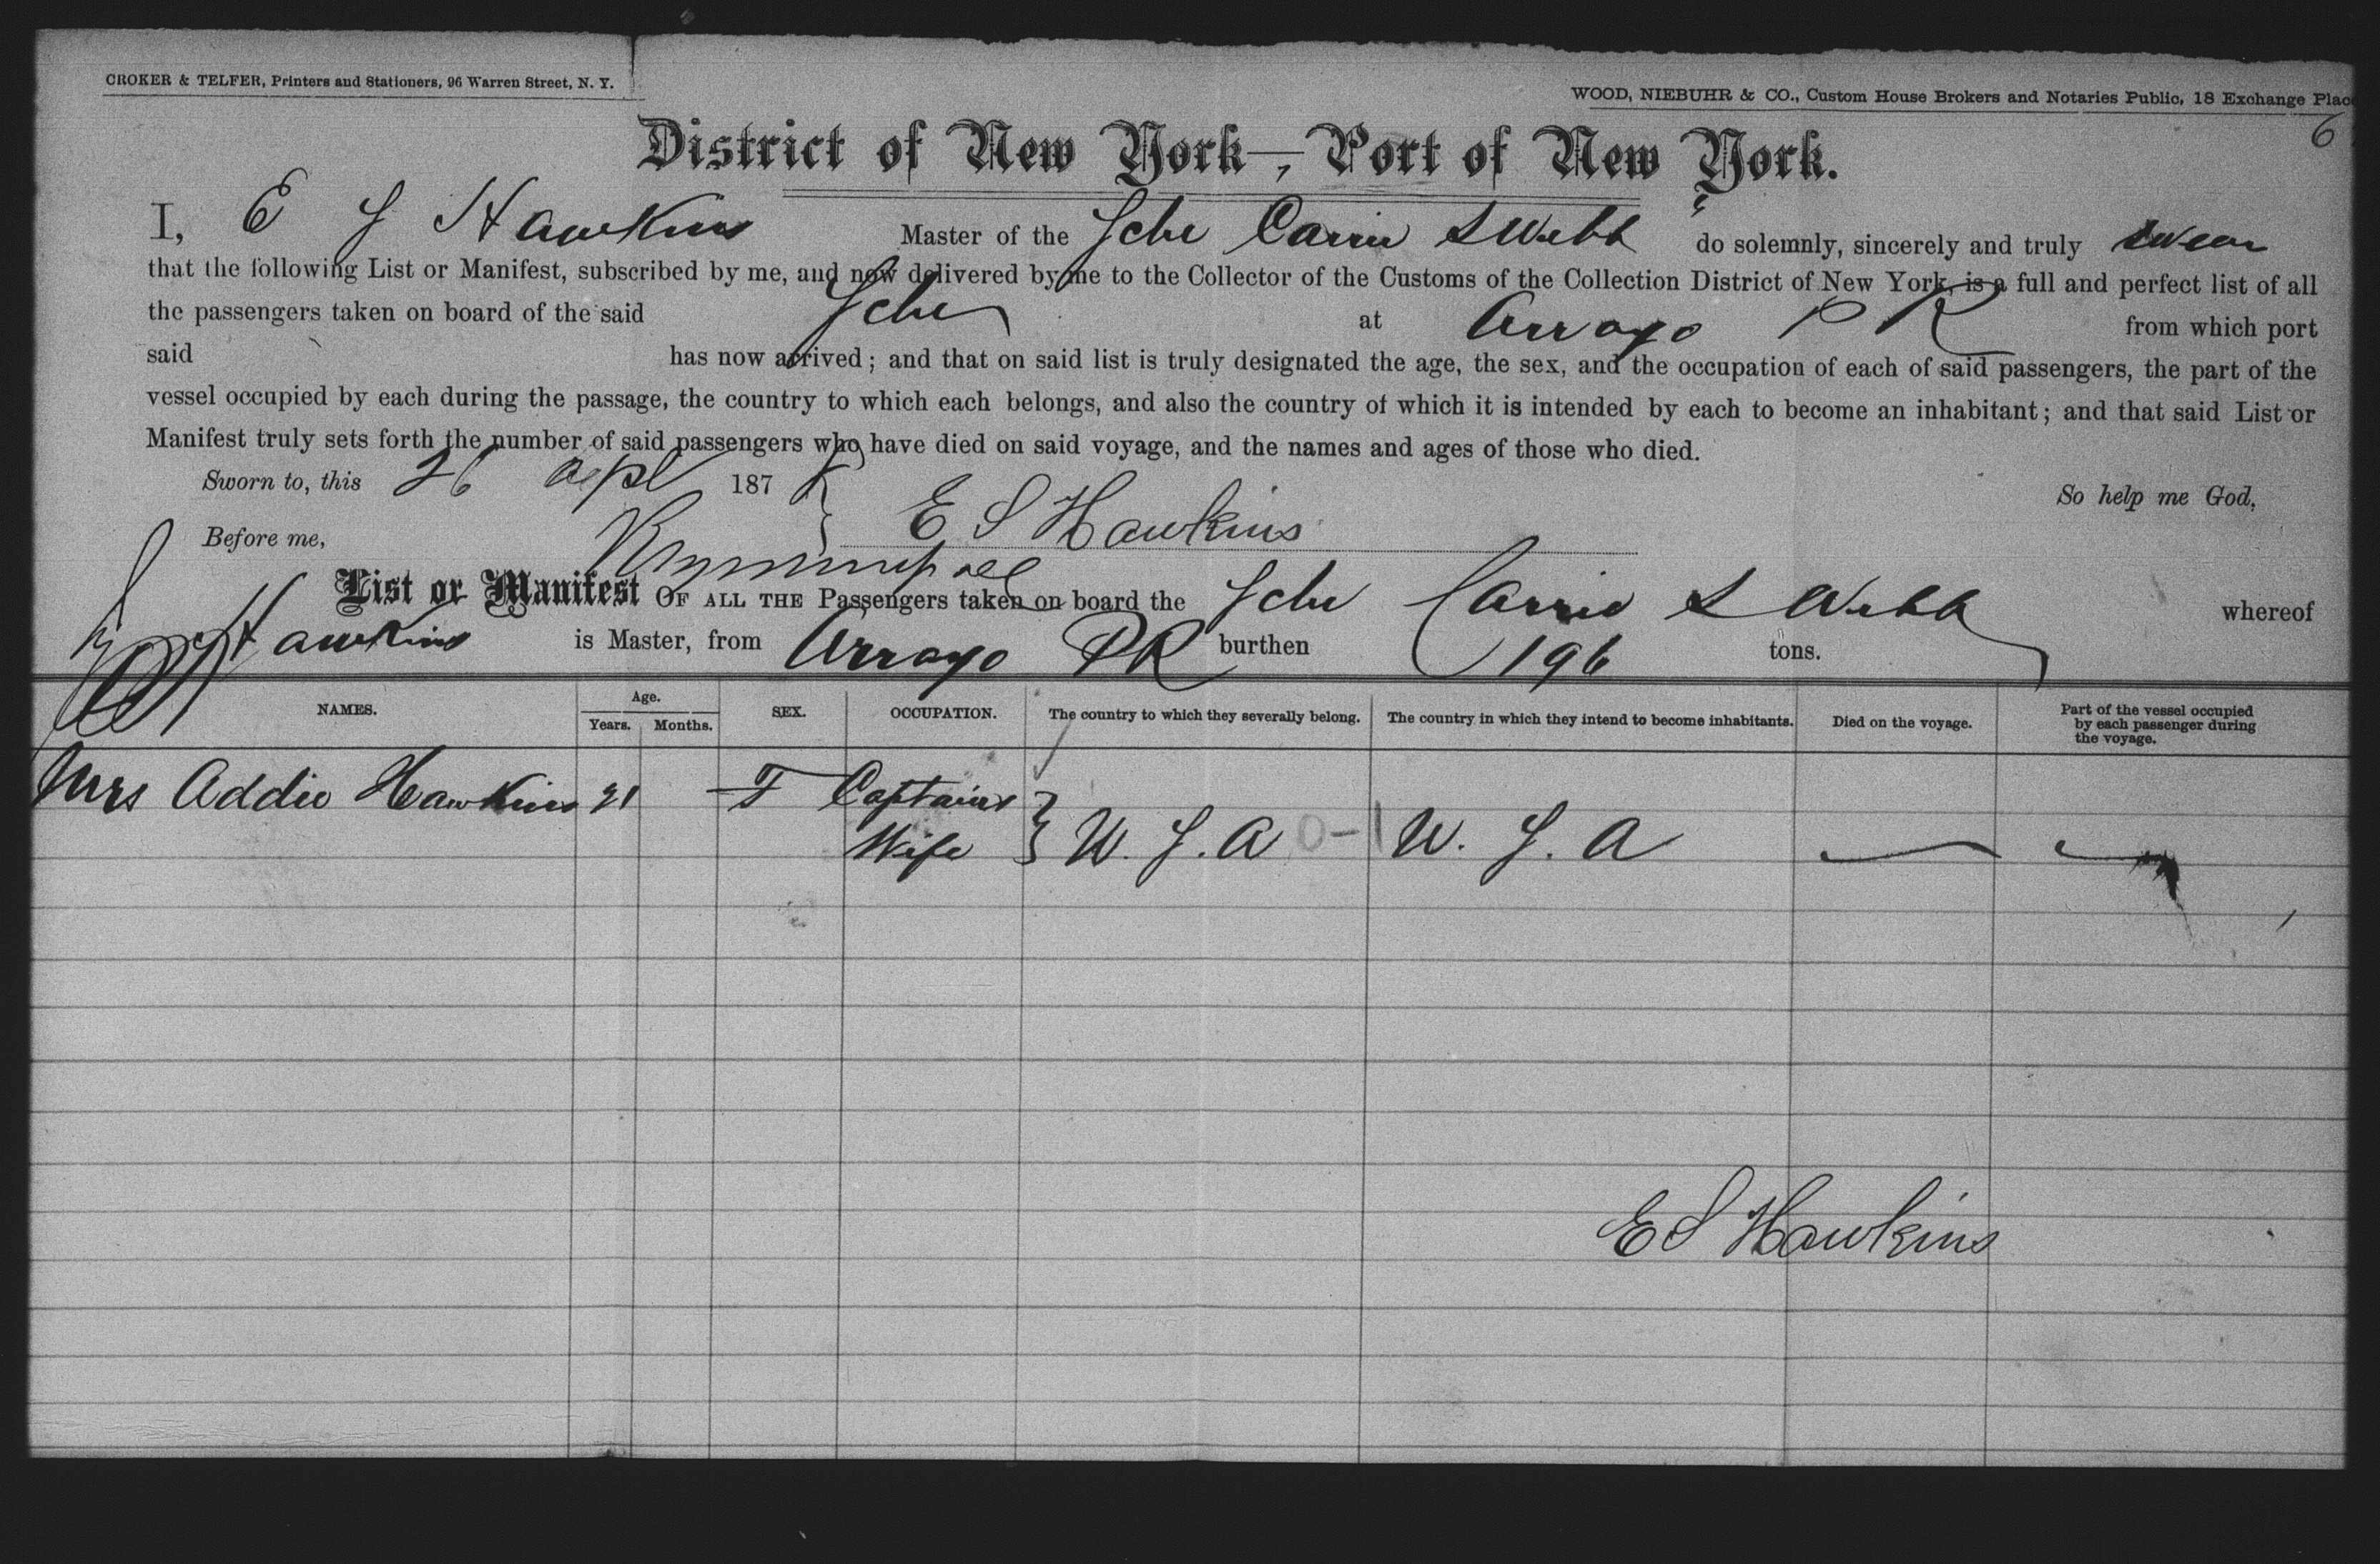 CROKER & TELFER, Printers and Stationers, 96 Warren Street, N. Y.
WOOD, NIEBUHR & CO., Custom House Brokers and Notaries Public, 18 Exchange Place
6
District of New York—, Port of New York.
I, E S Hawkins Master of the Schr Carrie S Webb do solemnly, sincerely and truly swear
that the following List or Manifest, subscribed by me, and now delivered by me to the Collector of the Customs of the Collection District of New York, is a full and perfect list of all
the passengers taken on board of the said Schr at Arroyo P R from which port
said has now arrived; and that on said list is truly designated the age, the sex, and the occupation of each of said passengers, the part of the
vessel occupied by each during the passage, the country to which each belongs, and also the country of which it is intended by each to become an inhabitant; and that said List or
Manifest truly sets forth the number of said passengers who have died on said voyage, and the names and ages of those who died.
Sworn to, this 26 apl 187 So help me God,
Before me, E S Hawkins
List or Manifest OF ALL THE Passengers taken on board the Schr Carrie S Webb whereof
Hawkins is Master, from Arroyo PR burthen 196 tons.
NAMES. Age. Years. Months. SEX. OCCUPATION. The country to which they severally belong. The country in which they intend to become inhabitants. Died on the voyage. Part of the vessel occupied by each passenger during the voyage.
Mrs Addie Hawkins 21 F Captains
Wife U. S. A 0-1 U. S. A
E S Hawkins